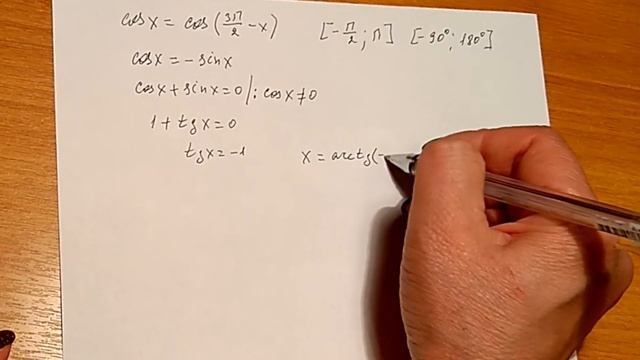 cos x = cos (3π/2 - x) [-π/2; π] [-90°; 180°]
cos x = - sin x
cos x + sin x = 0 /: cos x ≠ 0
1 + tg x = 0
tg x = -1 x = arctg(-